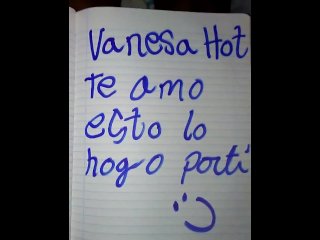 Vanesa Hot
te amo
esto lo
hogo porti